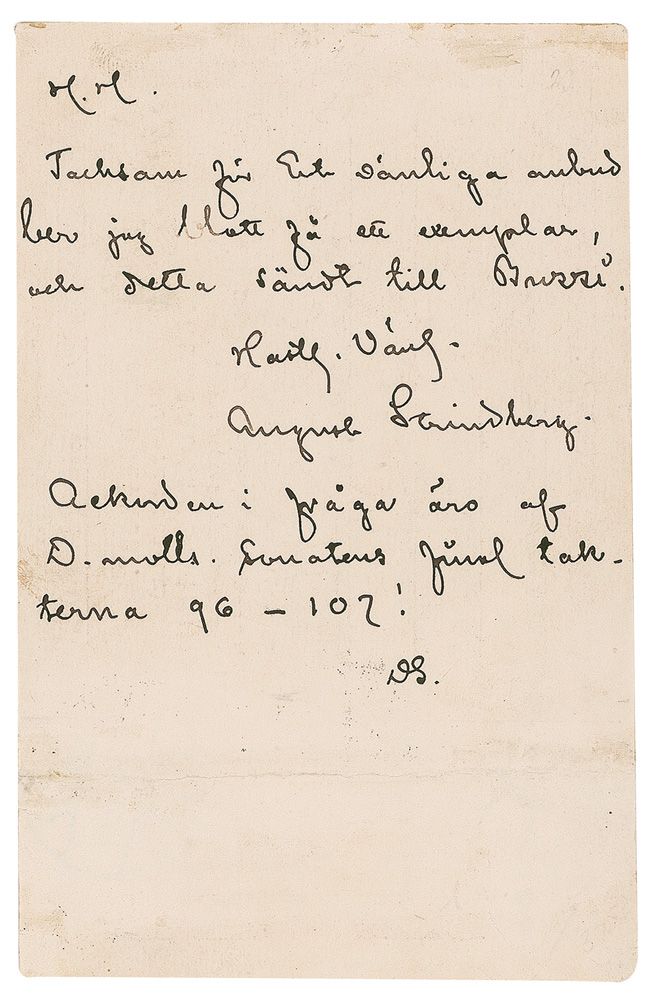 H. H.
Tacksam för Ert vänliga anbud
ber jag blott få ett exemplar,
och detta sändt till
Vänl.
August Strindberg.
Ackorden i fråga äro af
D. molls. Sonatens Final tak-
terna 96 – 107!
DS.